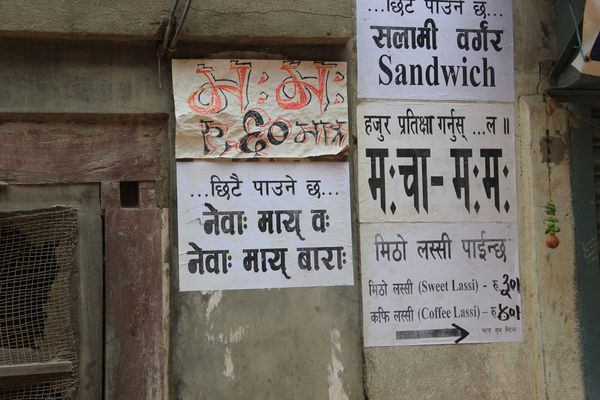 मः मः
रु. ६० मात्र
...छिटै पाउने छ...
नेवाः माय् वः
नेवाः माय् बाराः
...छिटै पाउने छ...
सलामी वर्गर
Sandwich
हजुर प्रतिक्षा गर्नुस् ...ल ॥
मःचा-मःमः
मिठो लस्सी पाईन्छ
मिठो लस्सी (Sweet Lassi) - रु ३०।
कफि लस्सी (Coffee Lassi) - रु ४०।